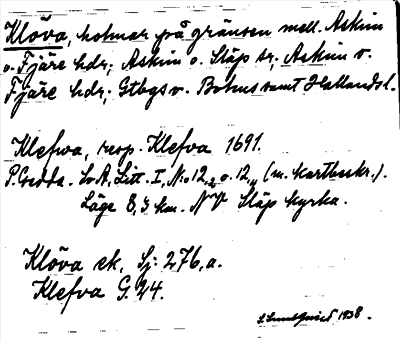 Klöva, holmar på gränsen mell. Askim
o. Fjäre hdr; Askim o. Släp sr; Askim o.
Fjäre hdr; Gtbgs o. Bohus samt Hallands l.
Klefwa, resp. Klefva 1691.
P. Gedda. LvA, Litt. I, No 12, o. 12, (m. kartbeskr.).
Läge 8,5 km. NNV Släp kyrka.
Klöva ek, Sj: 276, a.
Klefva G. 24.
1938.